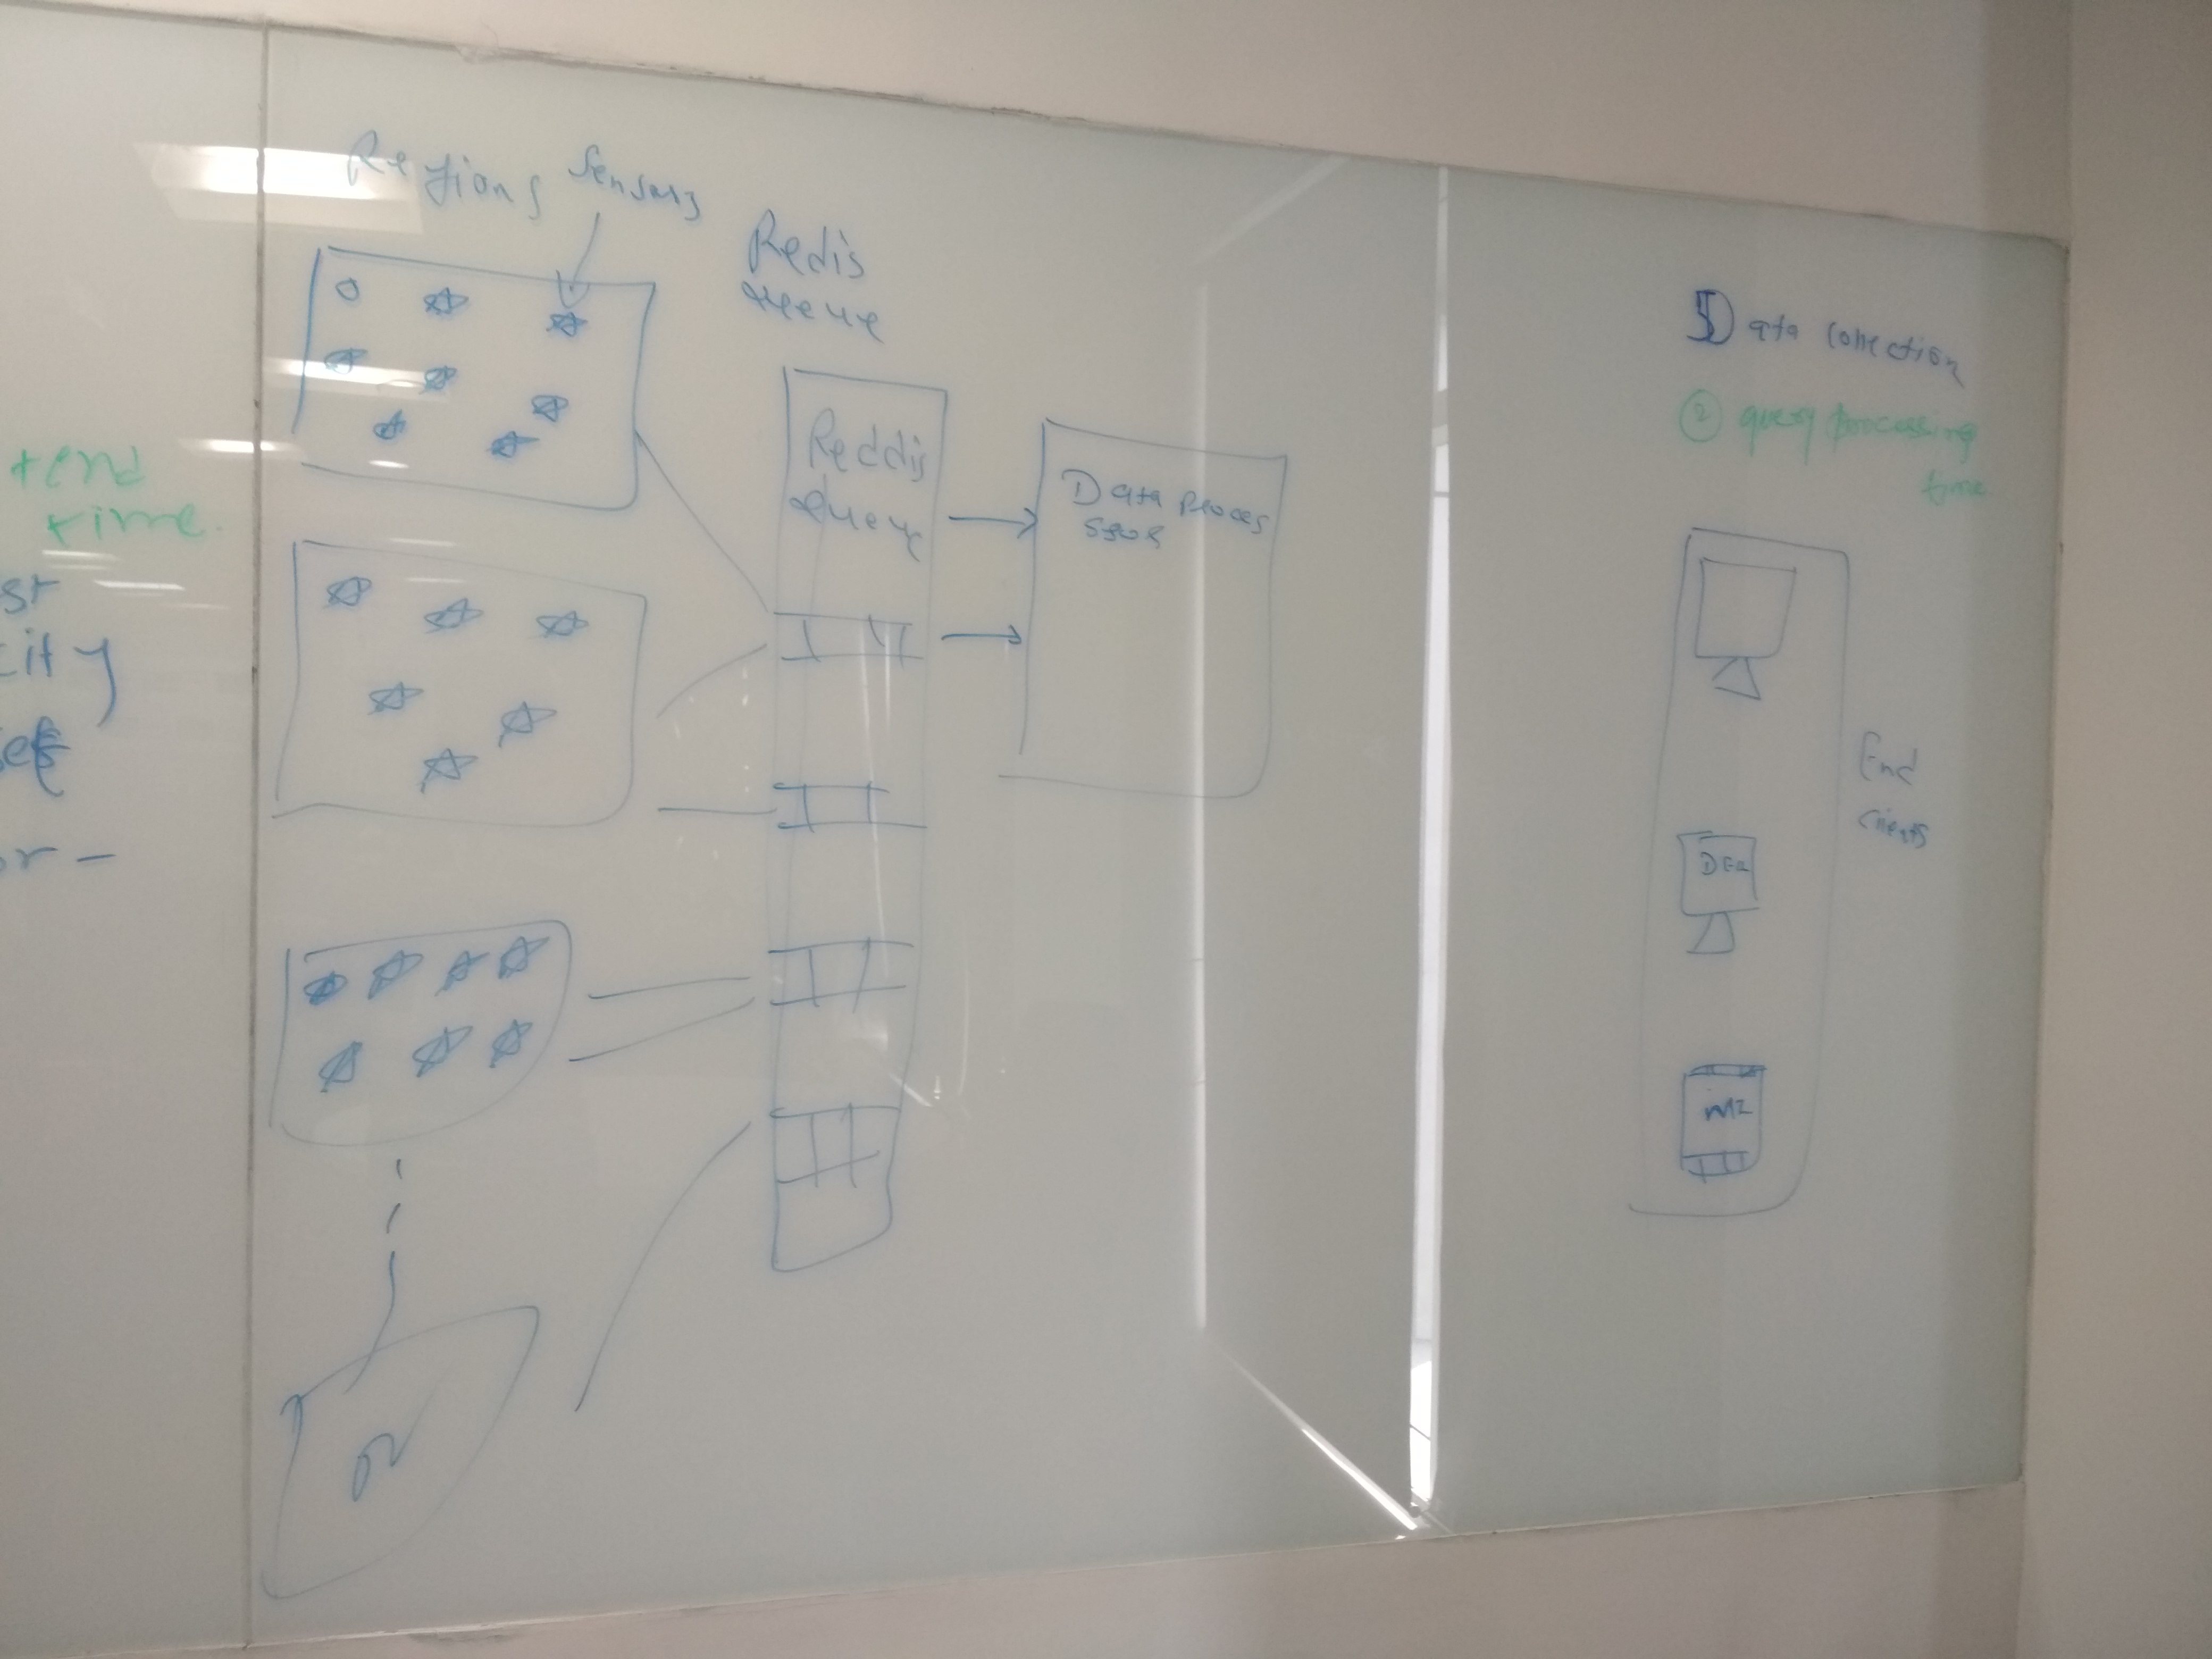 tend
time.
st
city
or -
Regions Sensors
Redis
queue
Reddis
queue
Data Proces
ssor
N
Data collection
② query processing
time
End
clients